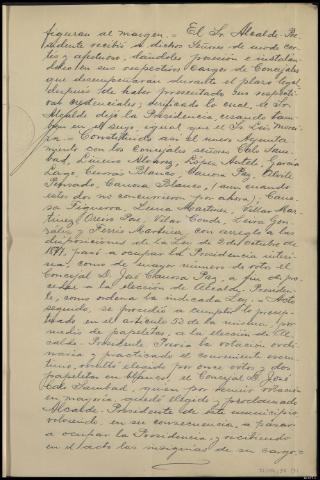 figuran al margen.= El Sr. Alcalde-Pre-
sidente recibió á dichos Señores de modo cor-
tés y afectuoso, dándoles posesión é instalán-
dolos en sus respectivos cargos de Concejales
que desempeñarán durante el plazo legal,
después de haber presentado sus respecti-
vas credenciales; verificado lo cual, el Sr.
Alcalde dejó la Presidencia, cesando tam-
bien en el cargo, igual que el Sr.
= Constituído así el nuevo Ayunta-
miento con los Concejales señores Cota Sam-
bad, Linero Alvarez, López Antelo, García
Lago, Cuevas Blanco, Canosa Paz,
Canosa Blanco, (aun cuando
estos dos no concurrieron por ahora); Cano-
sa Figueroa, Martínez, Villar Mar-
tinez, Pais, Vilar Conde, Leira Gon-
zález y Ferrío Martínez, con arreglo á las
disposiciones de la Ley de 2 de Octubre de
1877, pasó á ocupar la Presidencia interi-
na, como de mayor número de votos el
Concejal D. José Canosa Paz, á fin de pro-
ceder á la elección de Alcalde-Presiden-
te, como ordena la indicada Ley.= Acto
seguido, se procedió á cumplir lo precep-
tuado en el artículo 53 de la misma, por
medio de papeletas, á la elección de Al-
calde-Presidente. Previa la votación ordi-
naria y practicado el conveniente escru-
tinio, resultó elegido por once votos y dos
papeletas en blanco, el Concejal D. José
Cota Sambad, quien por haber votación
en mayoría, quedó elegido y proclamado
Alcalde-Presidente de este municipio
volviendo, en su consecuencia, á pasar
á ocupar la Presidencia, y recibiendo
en el acto las insignias de su cargo.=